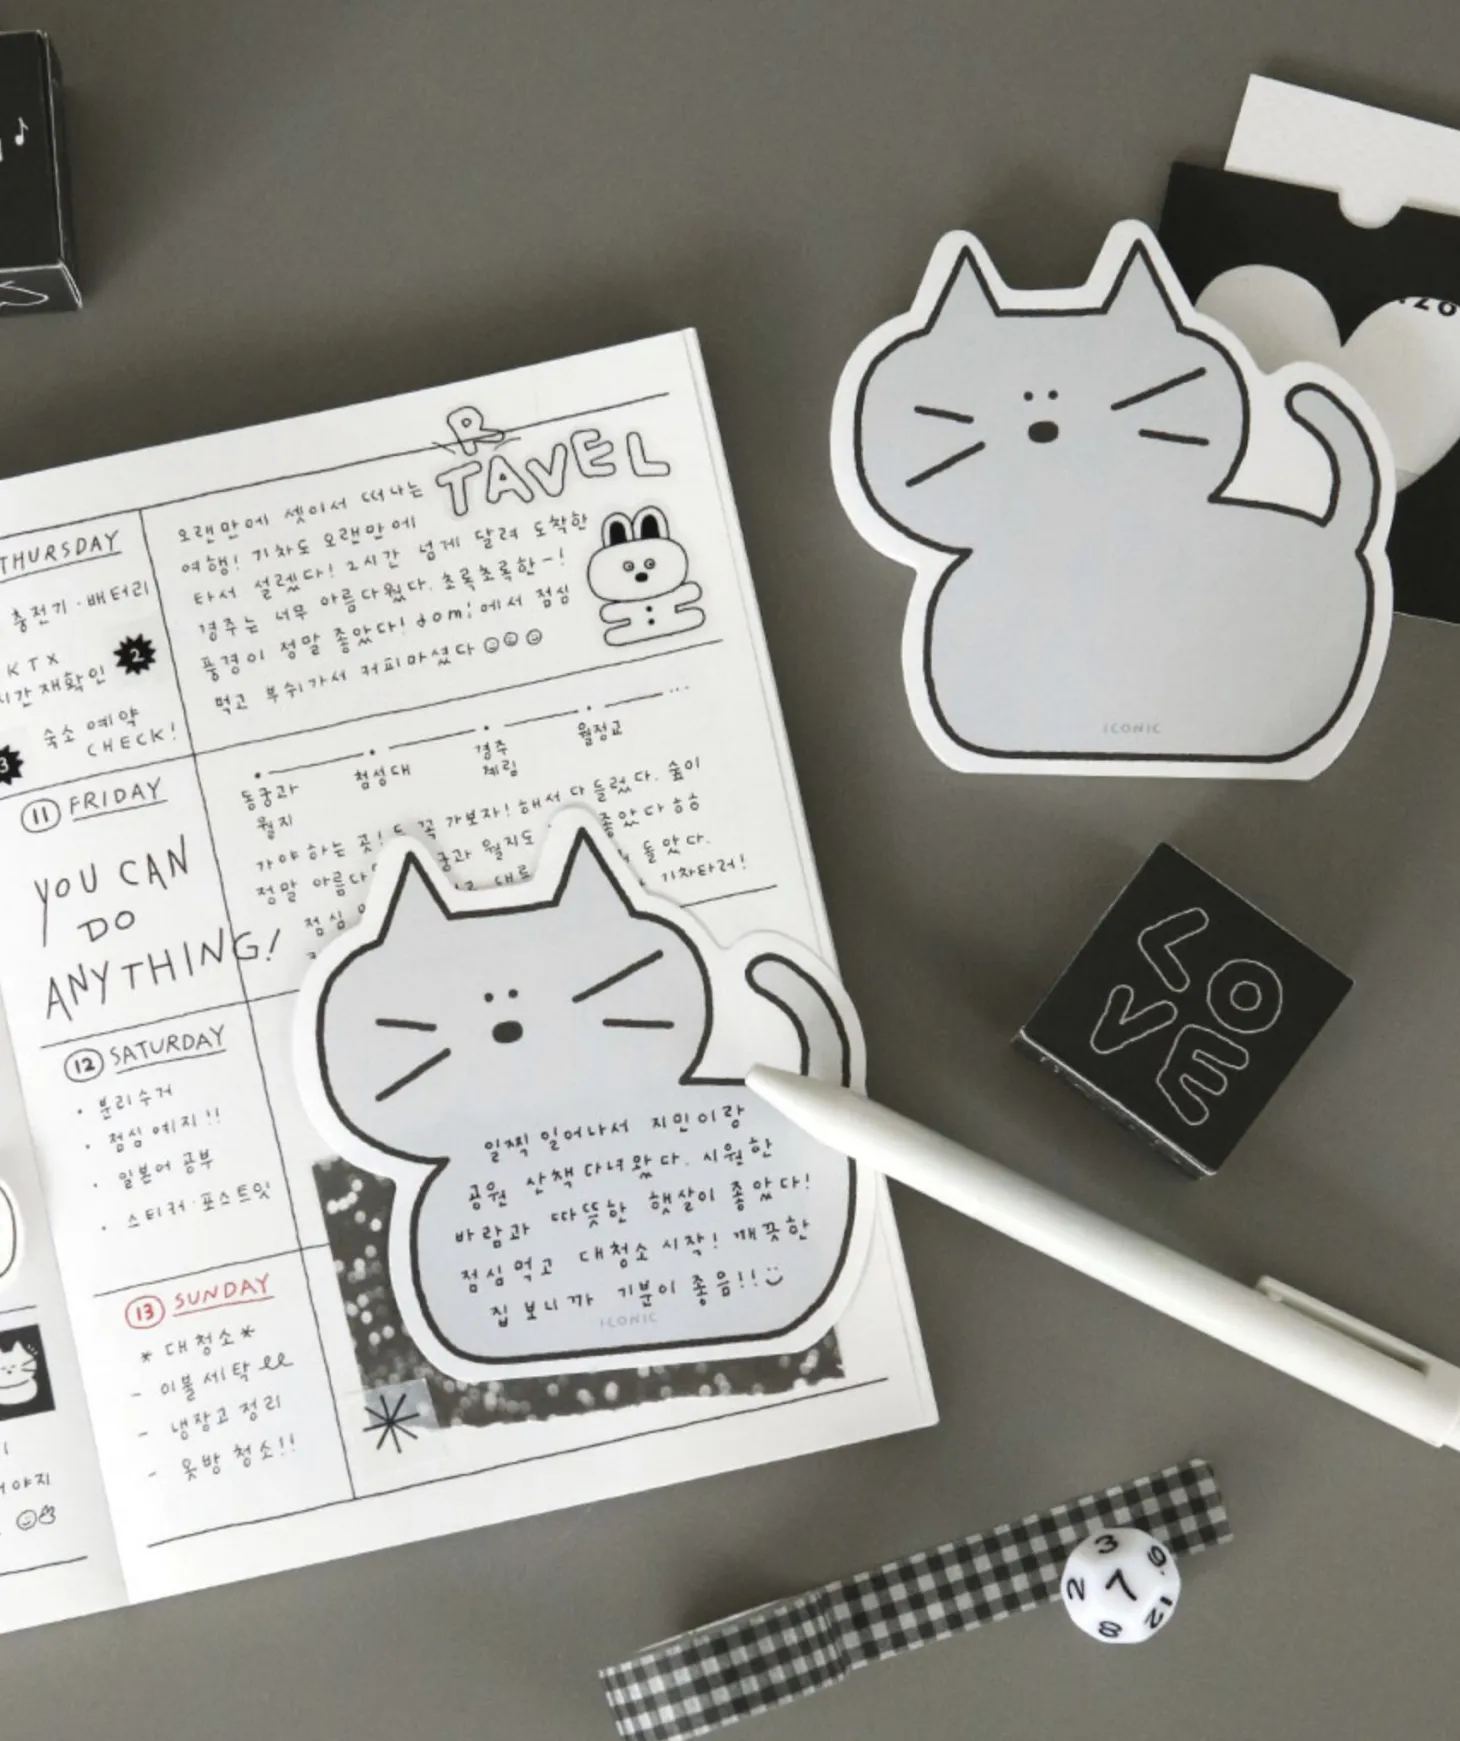 THURSDAY
충전기·배터리
KTX
시간 재확인
2
숙소 예약
CHECK!
3
11 FRIDAY
YOU CAN
DO
ANYTHING!
12 SATURDAY
• 분리수거
• 점심 예지!!
• 일본어 공부
• 스티커·포스트잇
13 SUNDAY
* 대청소 *
- 이불 세탁
- 냉장고 정리
- 옷방 청소!!
R
TAVEL
오랜만에 셋이서 떠나는
여행! 기차도 오랜만에
타서 설렜다! 2시간 넘게 달려 도착한
경주는 너무 아름다웠다. 초록초록한~!
풍경이 정말 좋았다! domi에서 점심
먹고 부쉬가서 커피마셨다
동궁과
월지
첨성대
경주
계림
월정교
가야 하는 곳! 꼭 가보자! 해서 다 들렀다. 숲이
정말 아름다 궁과 월지도 좋았다 ㅎㅎ
점심 돌았다.
기차타러!
일찍 일어나서 지민이랑
공원 산책 다녀왔다. 시원한
바람과 따뜻한 햇살이 좋았다!
점심 먹고 대청소 시작! 깨끗한
집 보니까 기분이 좋음!!
ICONIC
ICONIC
LOVE
3
2
7
6
8
12